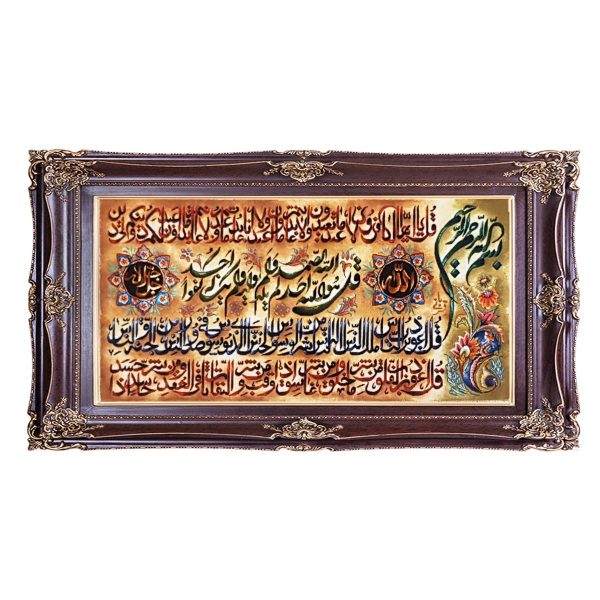 بسم الله الرحمن الرحيم
قل يا أيها الكافرون لا أعبد ما تعبدون ولا أنتم عابدون ما أعبد ولا أنا عابد ما عبدتم ولا أنتم عابدون ما أعبد لكم دينكم ولي دين
الله
قل هو الله أحد الله الصمد لم يلد ولم يولد ولم يكن له كفوا أحد
جل جلاله
قل أعوذ برب الناس ملك الناس إله الناس من شر الوسواس الخناس الذي يوسوس في صدور الناس من الجنة والناس
قل أعوذ برب الفلق من شر ما خلق ومن شر غاسق إذا وقب ومن شر النفاثات في العقد ومن شر حاسد إذا حسد